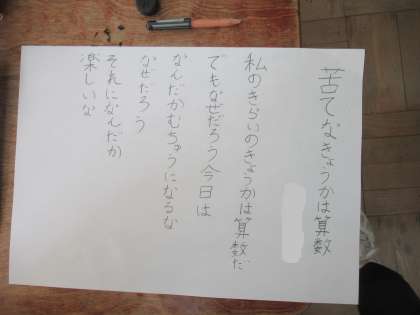 苦てなきょうかは算数
私のきらいのきょうかは算数だ
でもなぜだろう今日は
なんだかむちゅうになるな
なぜだろう
それになんだか
楽しいな